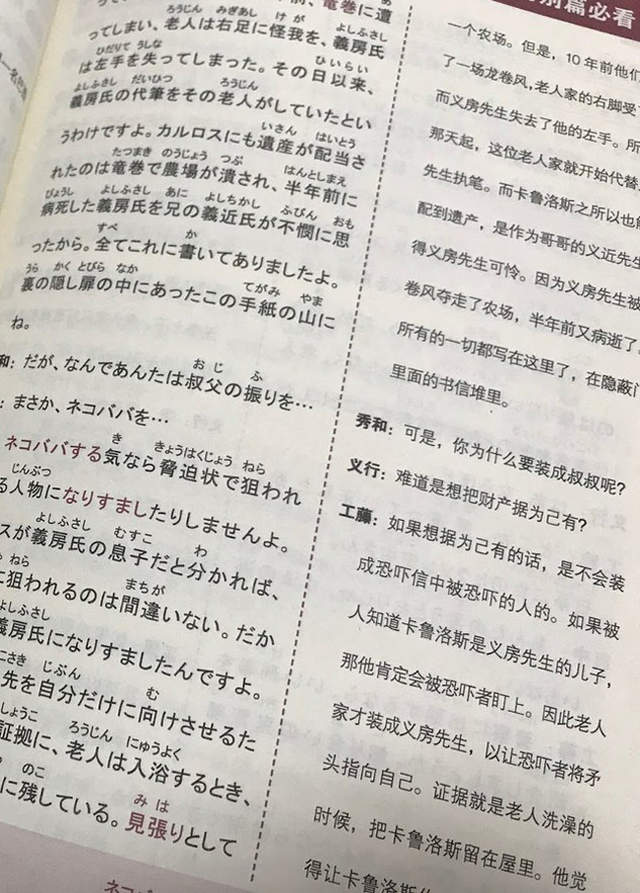 前、竜巻に遭
ってしまい、老人は右足に怪我を、義房氏
は左手を失ってしまった。その日以来、
義房氏の代筆をその老人がしていたとい
うわけですよ。カルロスにも遺産が配当さ
れたのは竜巻で農場が潰され、半年前に
病死した義房氏を兄の義近氏が不憫に思
ったから。全てこれに書いてありましたよ。
裏の隠し扉の中にあったこの手紙の山に
ね。
和：だが、なんであんたは叔父の振りを…
：まさか、ネコババを…
ネコババする気なら脅迫状で狙われ
る人物になりすましたりしませんよ。
スが義房氏の息子だと分かれば、
に狙われるのは間違いない。だか
義房氏になりすましたんですよ。
先を自分だけに向けさせるた
証拠に、老人は入浴するとき、
に残している。見張りとして
ネコバ
别篇必看
一个农场。但是，10年前他们
了一场龙卷风，老人家的右脚受
而义房先生失去了他的左手。所
那天起，这位老人家就开始代替
先生执笔。而卡鲁洛斯之所以也
配到遗产，是作为哥哥的义近先生
得义房先生可怜。因为义房先生被
卷风夺走了农场，半年前又病逝了
所有的一切都写在这里了，在隐蔽门
里面的书信堆里。
秀和：可是，你为什么要装成叔叔呢？
义行：难道是想把财产据为己有？
工藤：如果想据为己有的话，是不会装
成恐吓信中被恐吓的人的。如果被
人知道卡鲁洛斯是义房先生的儿子，
那他肯定会被恐吓者盯上。因此老人
家才装成义房先生，以让恐吓者将矛
头指向自己。证据就是老人洗澡的
时候，把卡鲁洛斯留在屋里。他觉
得让卡鲁洛斯